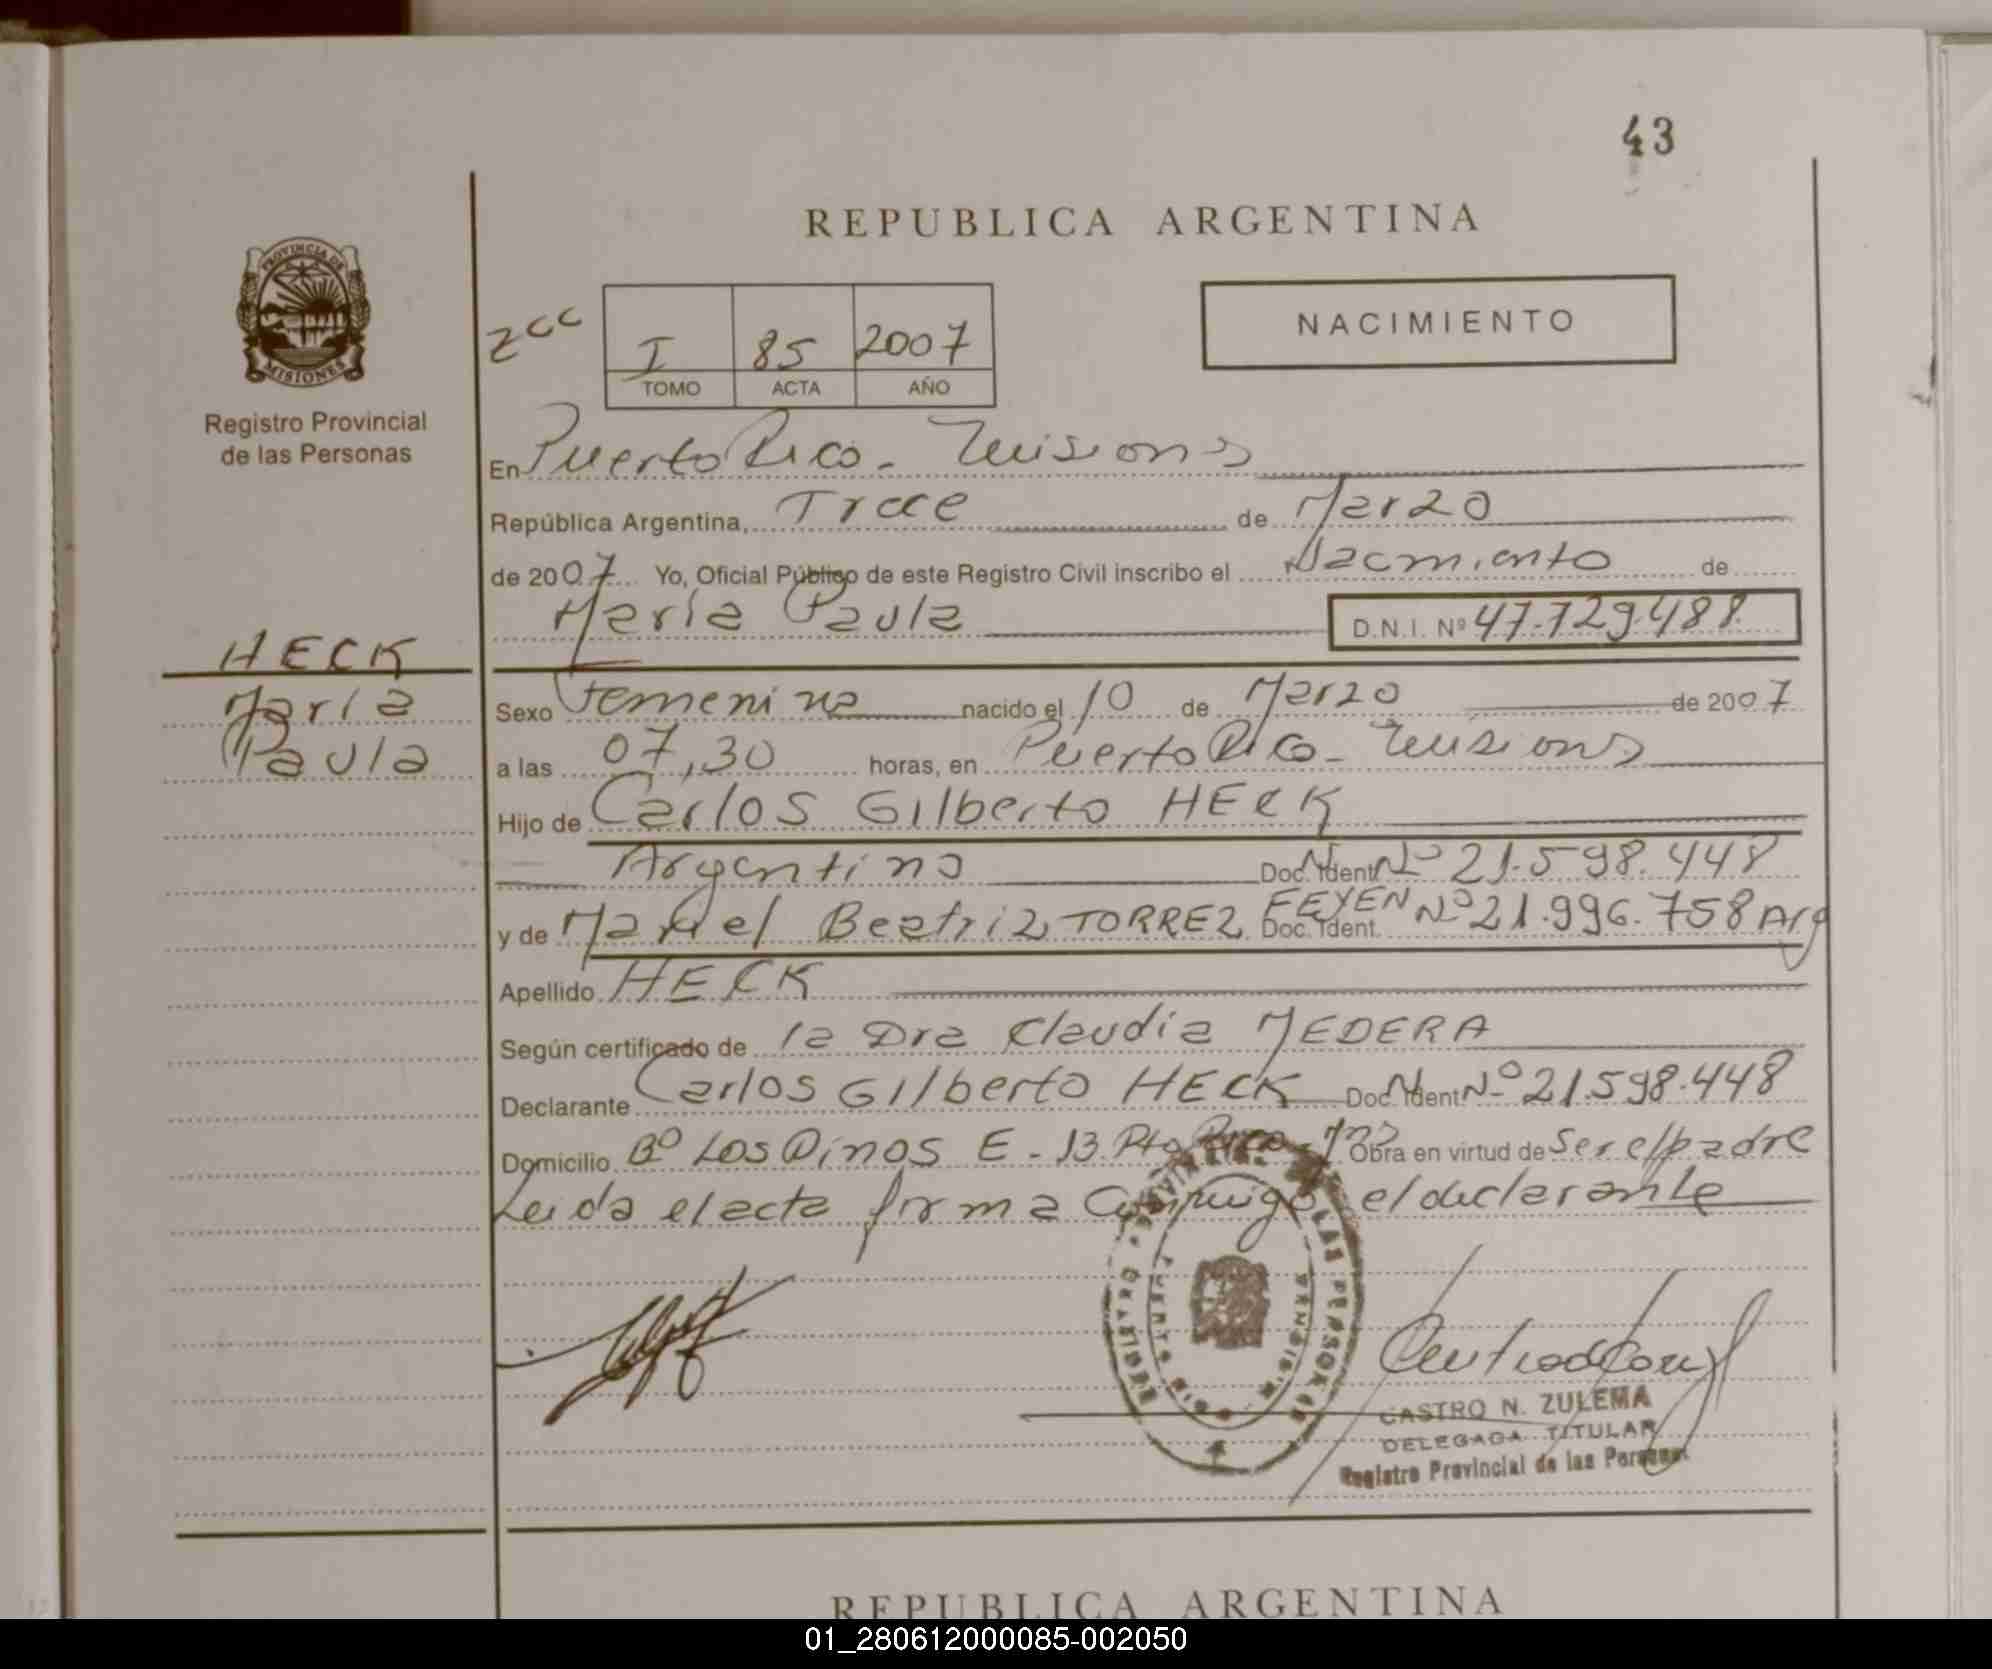 43
REPUBLICA ARGENTINA
PROVINCIA DE MISIONES
Registro Provincial
de las Personas
I 85 2007
TOMO ACTA AÑO
NACIMIENTO
En Puerto Rico - Misiones
República Argentina, Trece de Marzo
de 2007 Yo, Oficial Público de este Registro Civil inscribo el Nacimiento de
María Paula D.N.I. Nº 47.729.488
HECK
María
Paula
Sexo Femenino nacido el 10 de Marzo de 2007
a las 07,30 horas, en Puerto Rico - Misiones
Hijo de Carlos Gilberto HECK
Argentino Doc. Ident. Nº 21.598.448
y de Beatriz TORREZ FEYEN Doc. Ident. Nº 21.996.758 Arg
Apellido HECK
Según certificado de la Dra Claudia MEDERA
Declarante Carlos Gilberto HECK Doc. Ident. Nº 21.598.448
Domicilio Bº Los Pinos E - 13 Pto Rico - Mnes Obra en virtud de Ser el padre
Leida el acta firma conmigo el declarante
CASTRO N. ZULEMA
DELEGADA TITULAR
Registro Provincial de las Personas
REPUBLICA ARGENTINA
01_280612000085-002050